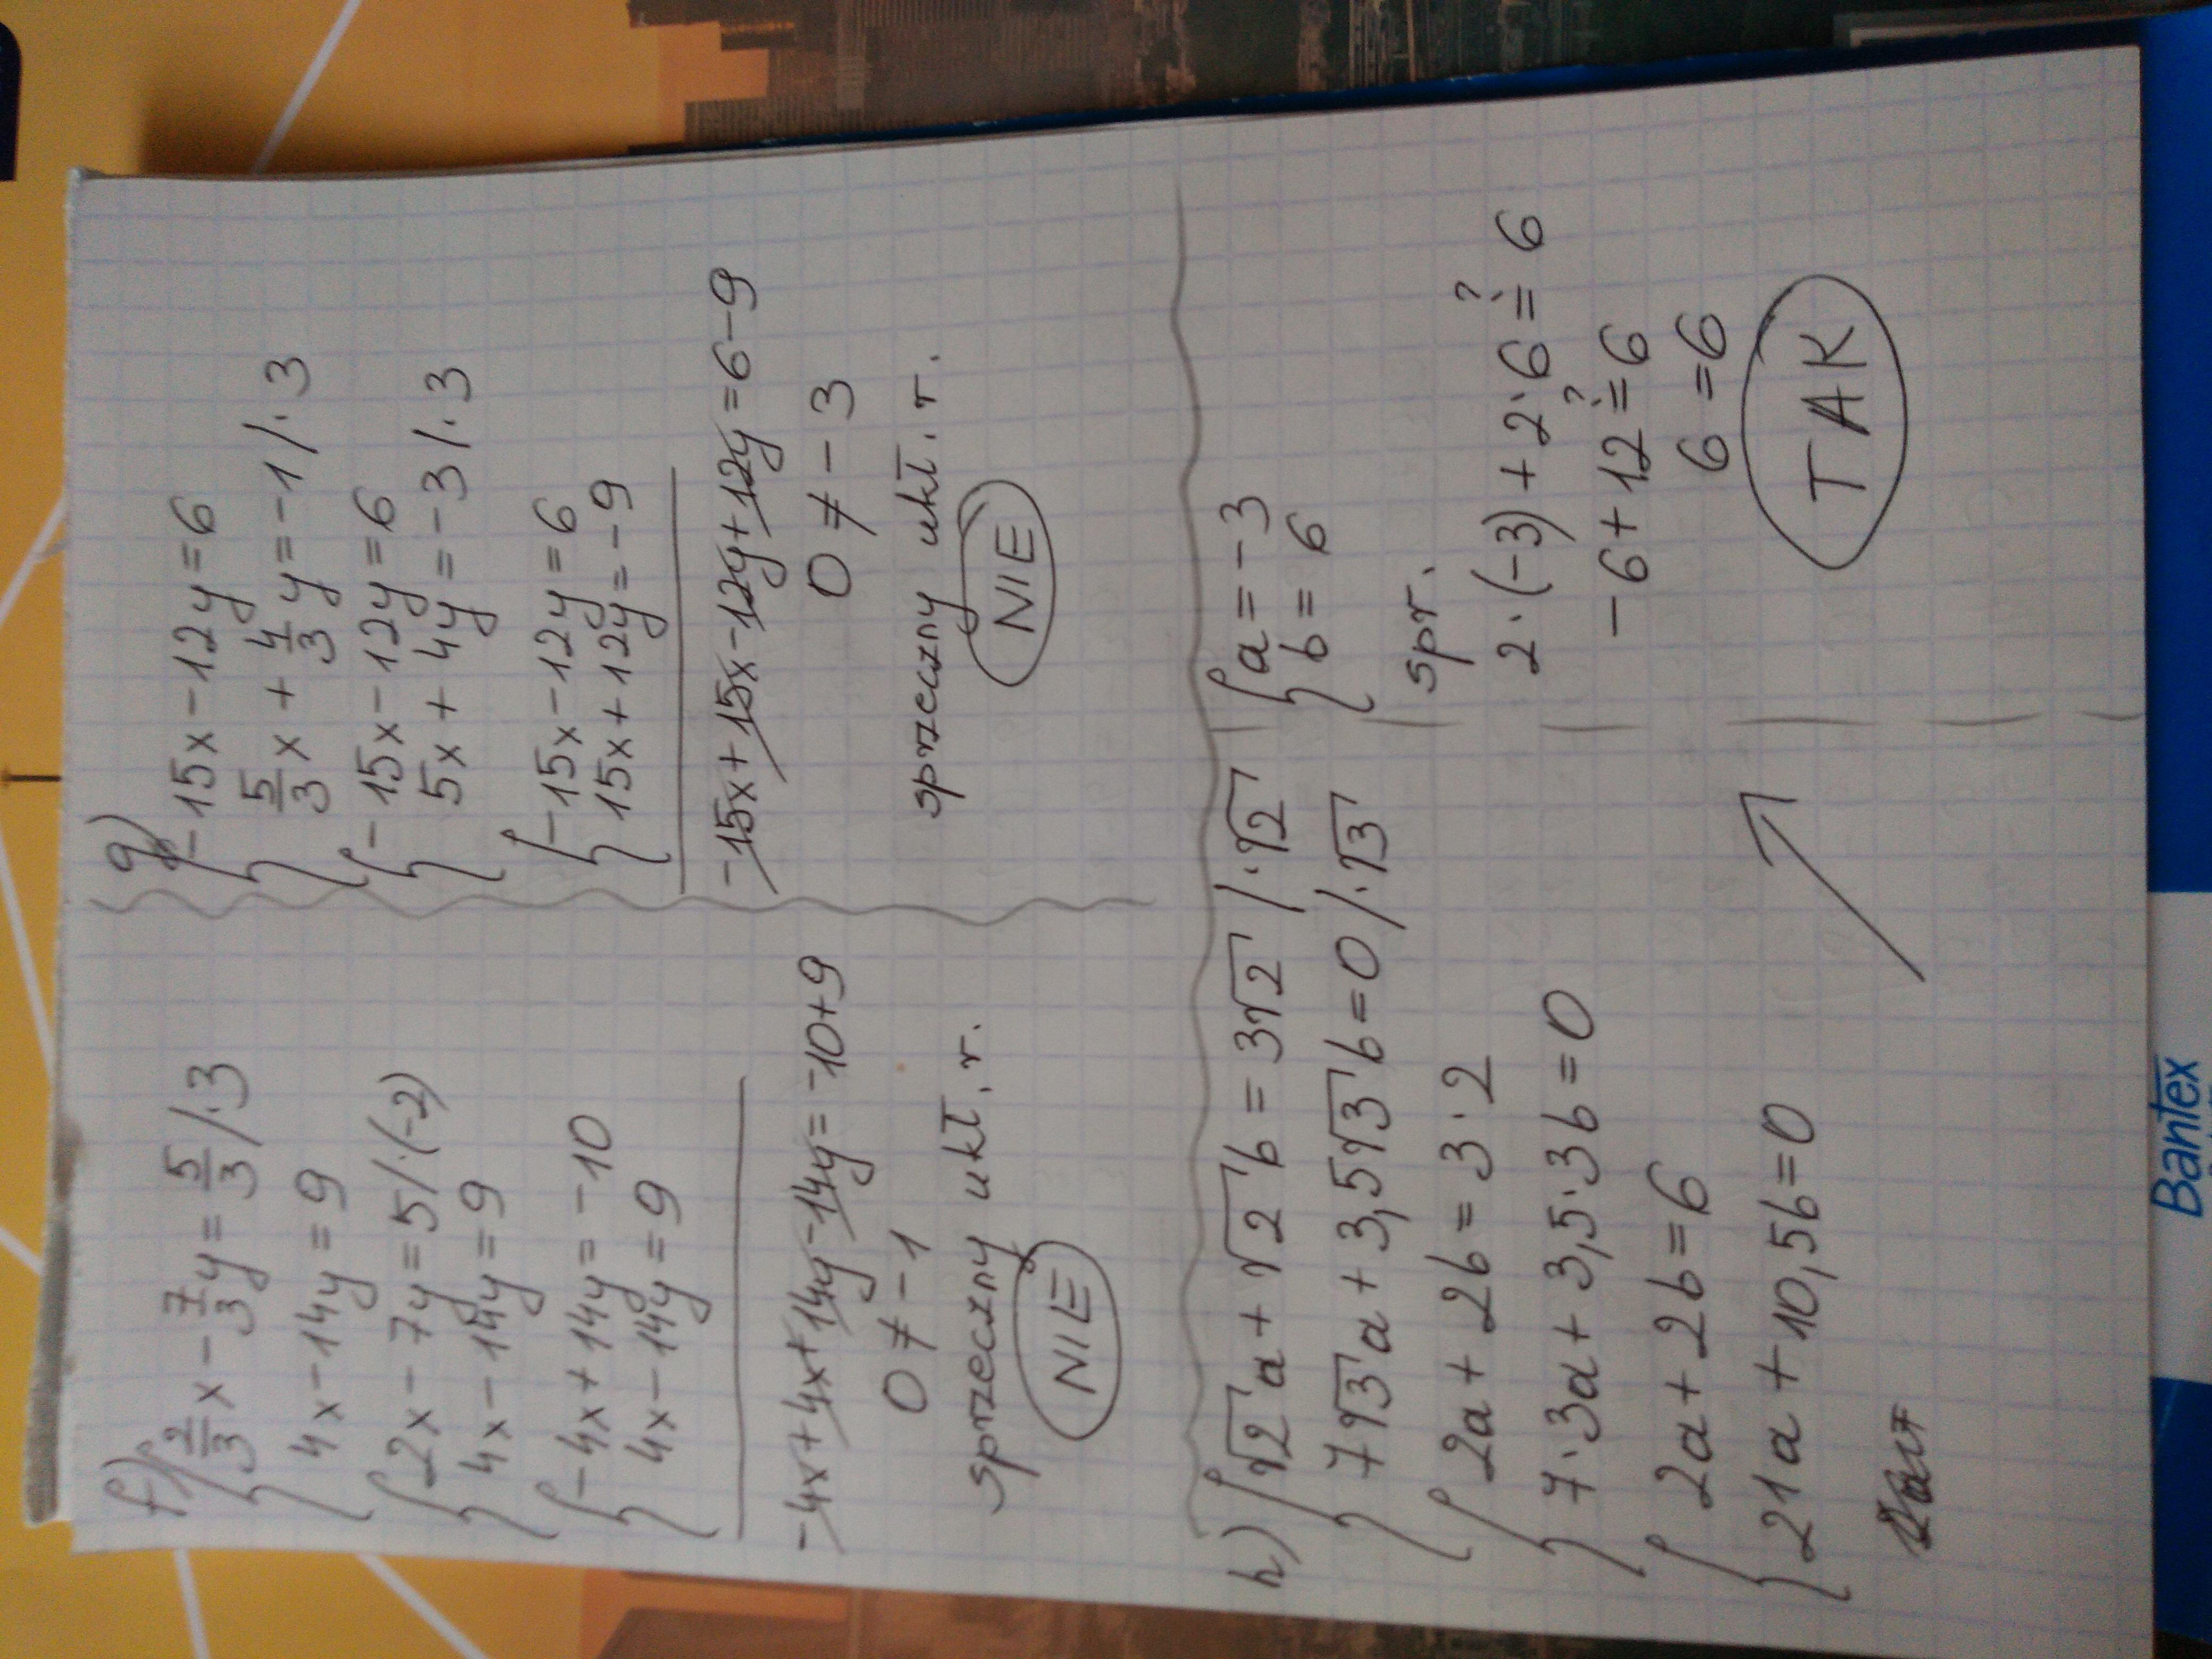 f)
{ 2/3 x - 7/3 y = 5/3 /·3
4x - 14y = 9
{ 2x - 7y = 5 /·(-2)
4x - 14y = 9
{ -4x + 14y = -10
4x - 14y = 9
-4x + 4x + 14y - 14y = -10+9
0 ≠ -1
sprzeczny ukł. r.
NIE
g)
{ -15x - 12y = 6
5/3 x + 4/3 y = -1 /·3
{ -15x - 12y = 6
5x + 4y = -3 /·3
{ -15x - 12y = 6
15x + 12y = -9
-15x + 15x - 12y + 12y = 6-9
0 ≠ -3
sprzeczny ukł. r.
NIE
h)
{ √2 a + √2 b = 3√2 /·√2
7√3 a + 3,5√3 b = 0 /·√3
{ 2a + 2b = 3·2
7·3a + 3,5·3b = 0
{ 2a + 2b = 6
21a + 10,5b = 0
{ a = -3
b = 6
spr.
2·(-3) + 2·6 ≟ 6
-6 + 12 ≟ 6
6 = 6
TAK
Bantex